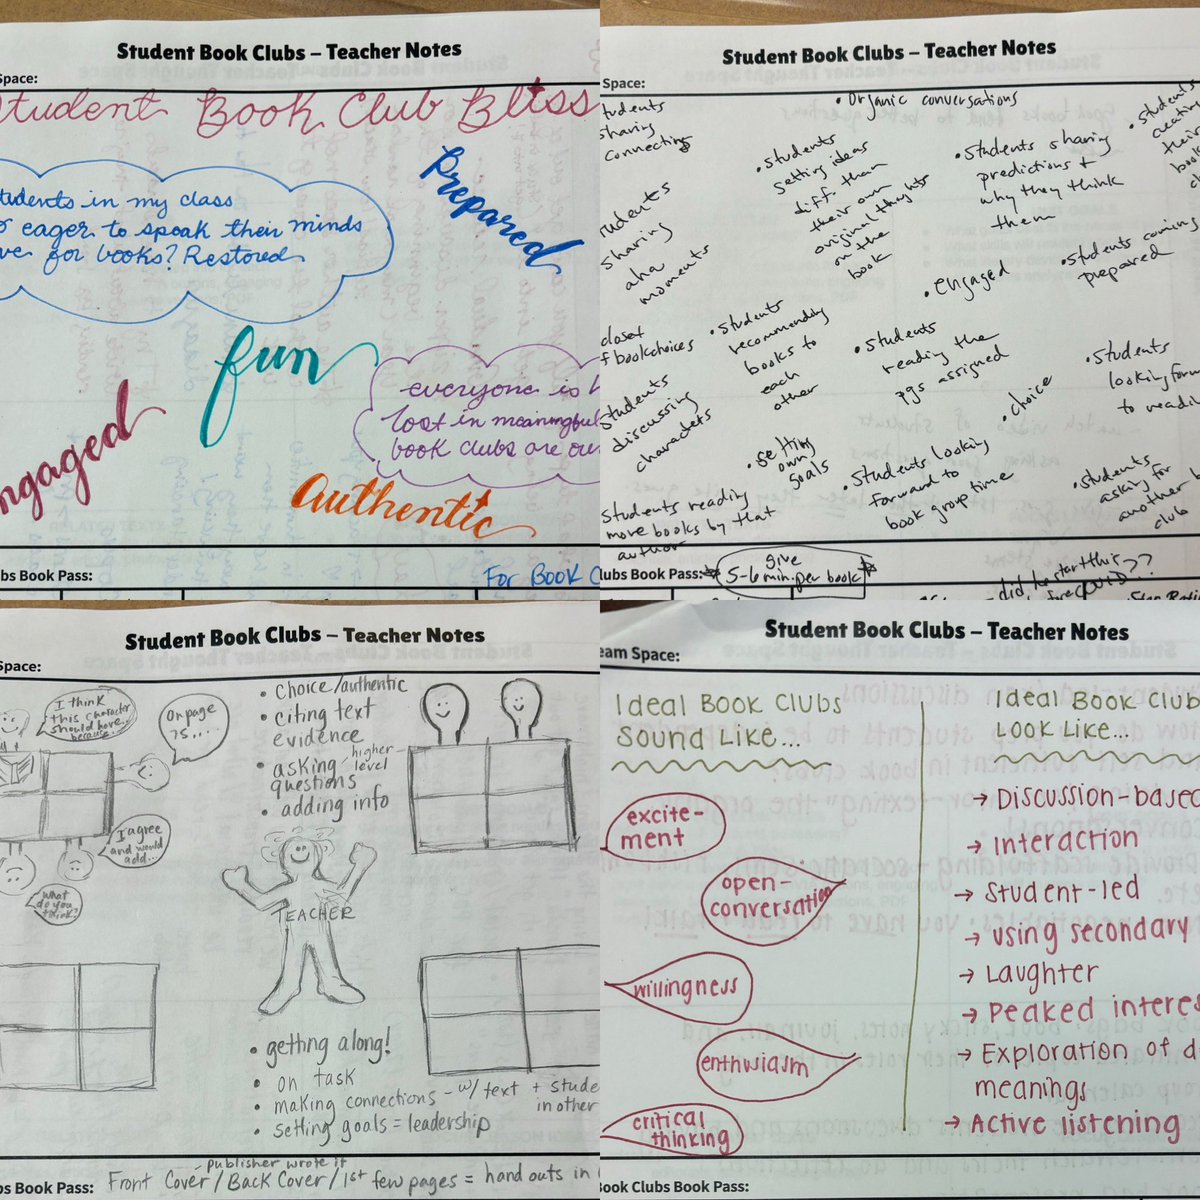 Student Book Clubs – Teacher Notes
Space:
Student Book Club Bliss
tudents in my class
eager to speak their minds
ve for books? Restored
Prepared
fun
everyone is
lost in meaningful
book clubs are ou
ngaged
Authentic
bs Book Pass:
For Book C
Student Book Clubs – Teacher Notes
Space:
• Organic conversations
tudents
sharing
connecting
• students
setting ideas
diff. than
their own
original thoughts
on the
book
• students sharing
predictions +
why they think
them
• students
creating
their
book
udents
sharing
aha
moments
• engaged
• students coming
prepared
closet
f bookchoices
• students
recommending
books to
each
other
• students
reading the
pgs assigned
• students
looking forw
to readi
• choice
Students
discussing
characters
• setting
own
goals
• students looking
forward to
book group time
• students
asking for
another b
club
Students reading
more books by that
author
Clubs Book Pass:
give
5-6 min. per book
did he start this
??
Student Book Clubs – Teacher Notes
Space:
I think
this character
should have...
because...
On page
75,...
I agree
and would
add...
what
do you
think?
• choice/authentic
• citing text
evidence
• asking higher-level
questions
• adding info
TEACHER
• getting along!
• on task
• making connections - w/ text + stude
in other
• setting goals = leadership
bs Book Pass:
publisher wrote it
Front Cover/Back Cover/1st few pages = hand outs in
Student Book Clubs – Teacher Notes
eam Space:
Ideal Book Clubs
Sound Like...
excite-
ment
open-
conversation
willingness
enthusiasm
critical
thinking
Ideal Book Club
Look Like...
→ Discussion-based
→ Interaction
→ Student-led
→ using secondary
→ Laughter
→ Peaked interes
→ Exploration of d
meanings
→ Active listening
Book Clubs Book Pass: